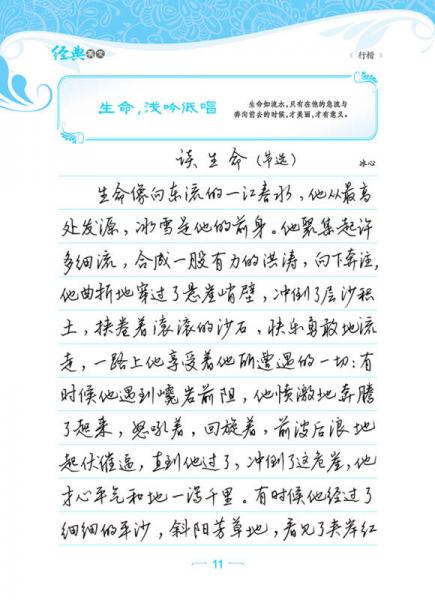 经典美文
行楷
生命,浅吟低唱
生命如流水,只有在他的急流与
奔向前去的时候,才美丽,才有意义。
谈生命(节选)
冰心
生命像向东流的一江春水,他从最高
处发源,冰雪是他的前身。他聚集起许
多细流,合成一股有力的洪涛,向下奔注,
他曲折地穿过了悬崖峭壁,冲倒了层沙积
土,挟卷着滚滚的沙石,快乐勇敢地流
走,一路上他享受着他所遭遇的一切:有
时候他遇到巉岩前阻,他愤激地奔腾
了起来,怒吼着,回旋着,前波后浪地
起伏催逼,直到他过了,冲倒了这危崖,他
才心平气和地一泻千里。有时候他经过了
细细的平沙,斜阳芳草地,看见了夹岸红
11